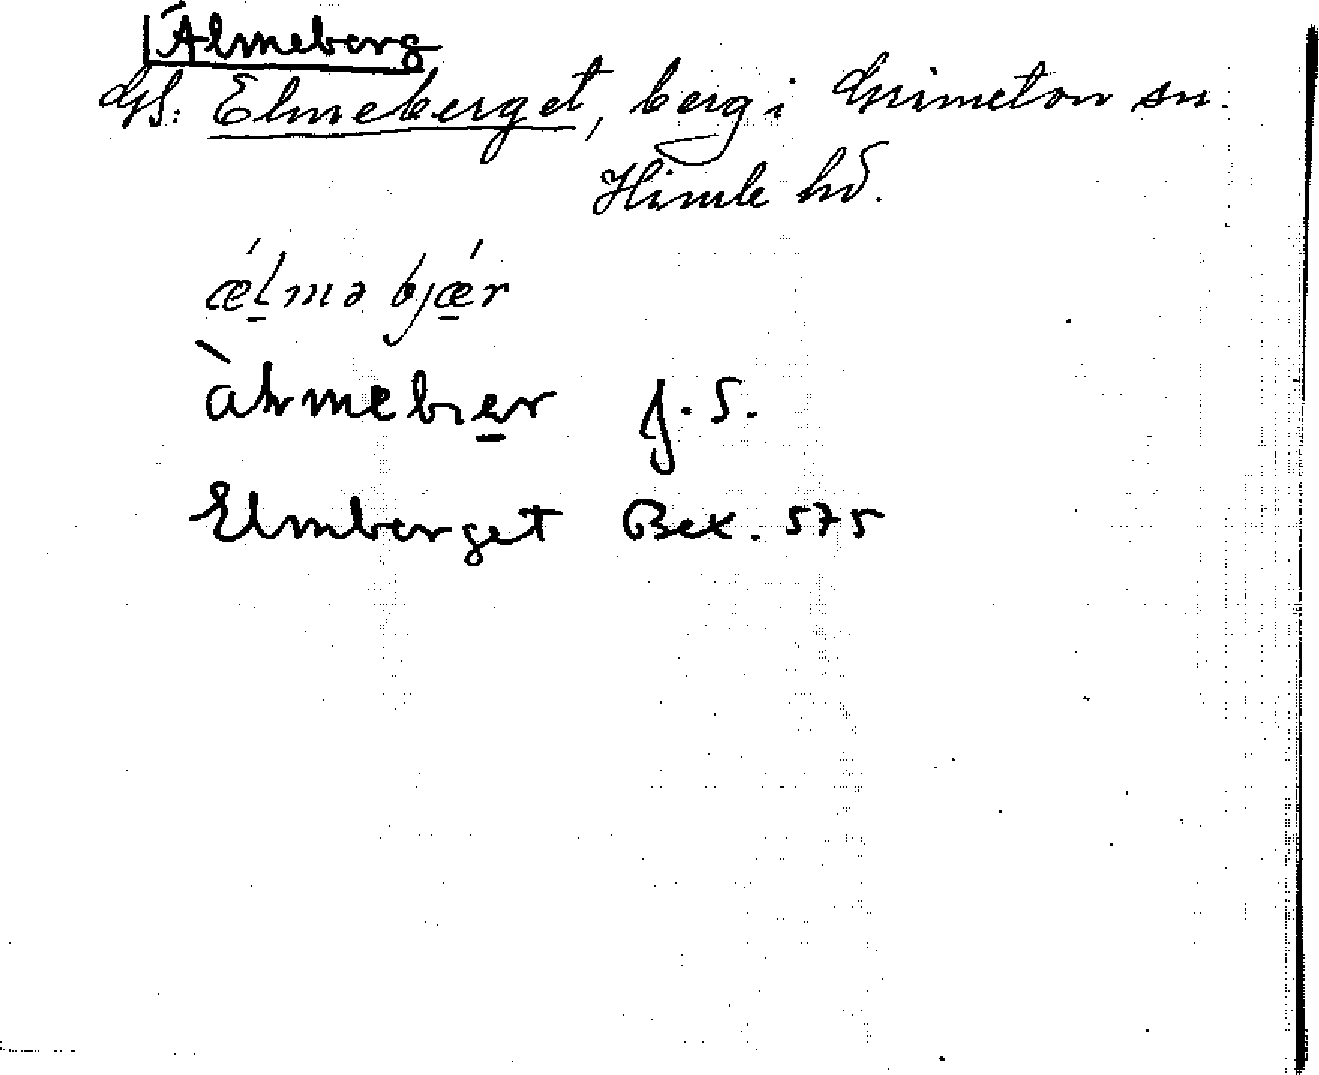 Älmeberg
GS: Elmeberget, berg i Grimeton sn.
Himle hd.
ǽḻmə bjǽ̱r
àhmebie̱r J. S.
Elmberget Bex. 575